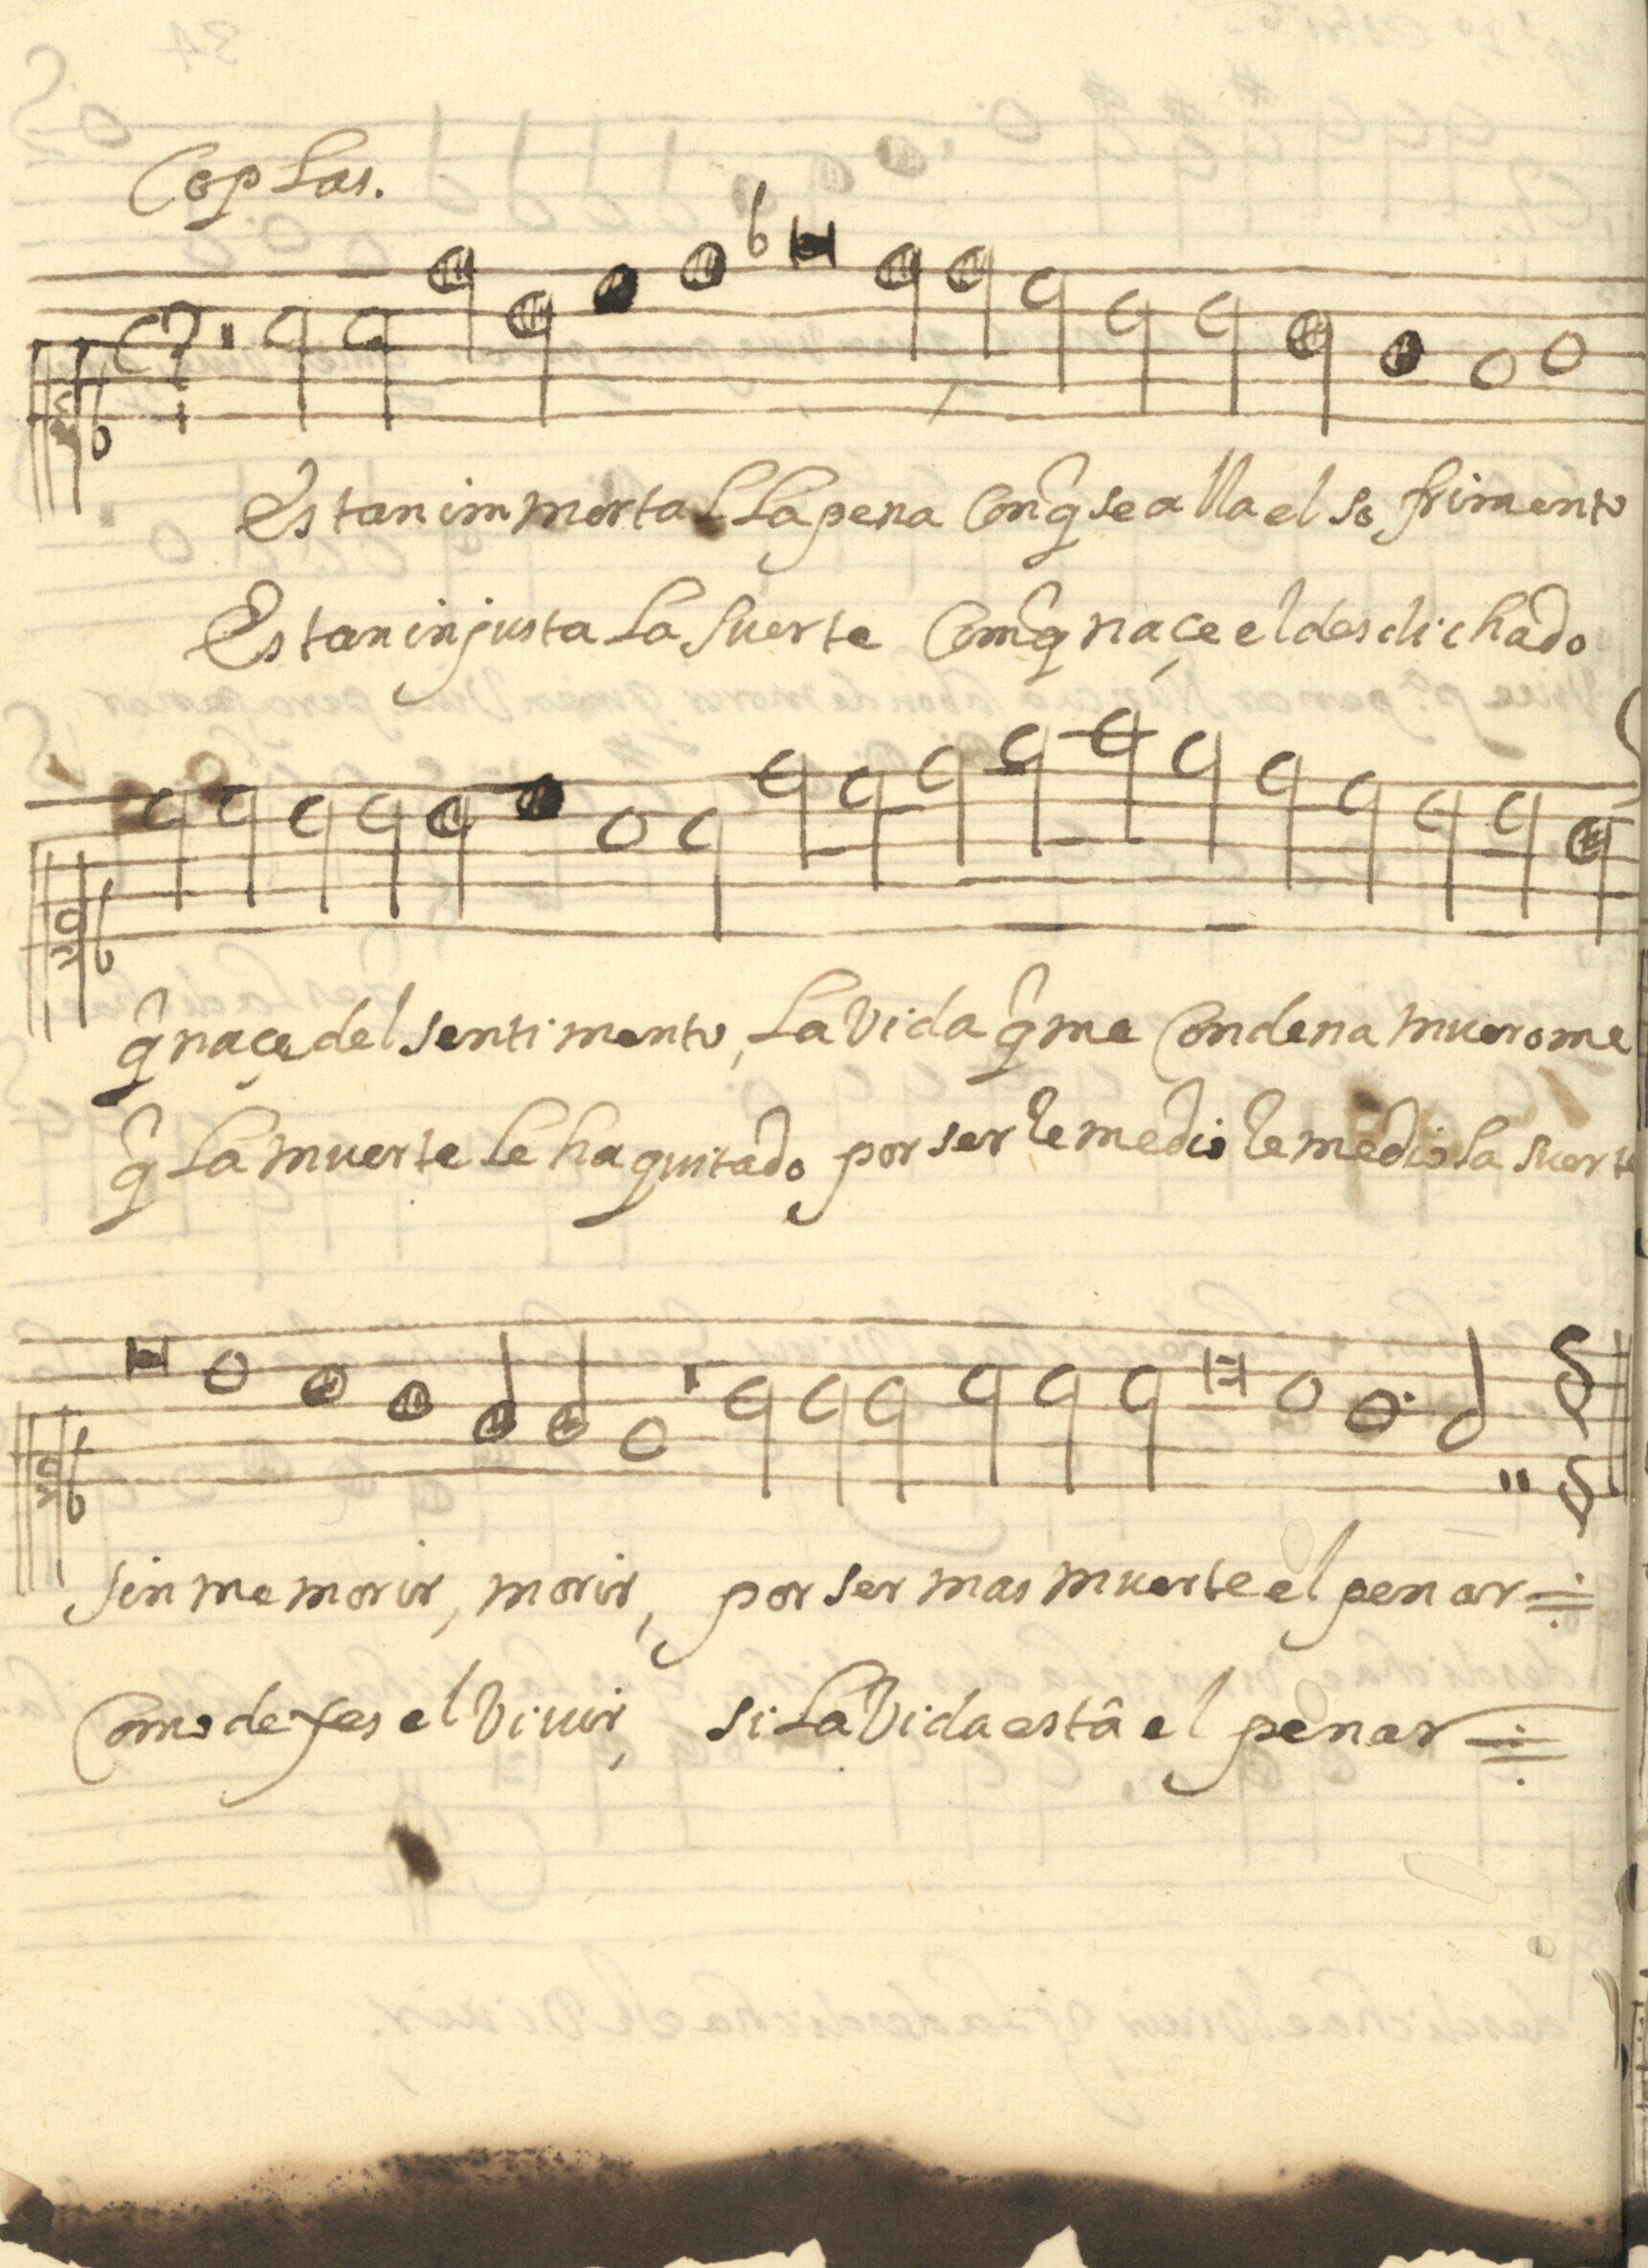 Coplas.
Es tan immortal La pena Conq̂ se alla el sofrimento
Es tan injusta La suerte Comq̂ naçe el desdichado
q̂ naçe del sentimento, La Vida q̂ me Condena muero me
q̂ La muerte Le ha quitado por ser Remedio Remedio La suerte
sin me morir, morir, por ser mas muerte el penar
Como dexes el Viuir, si La Vida estâ el penar